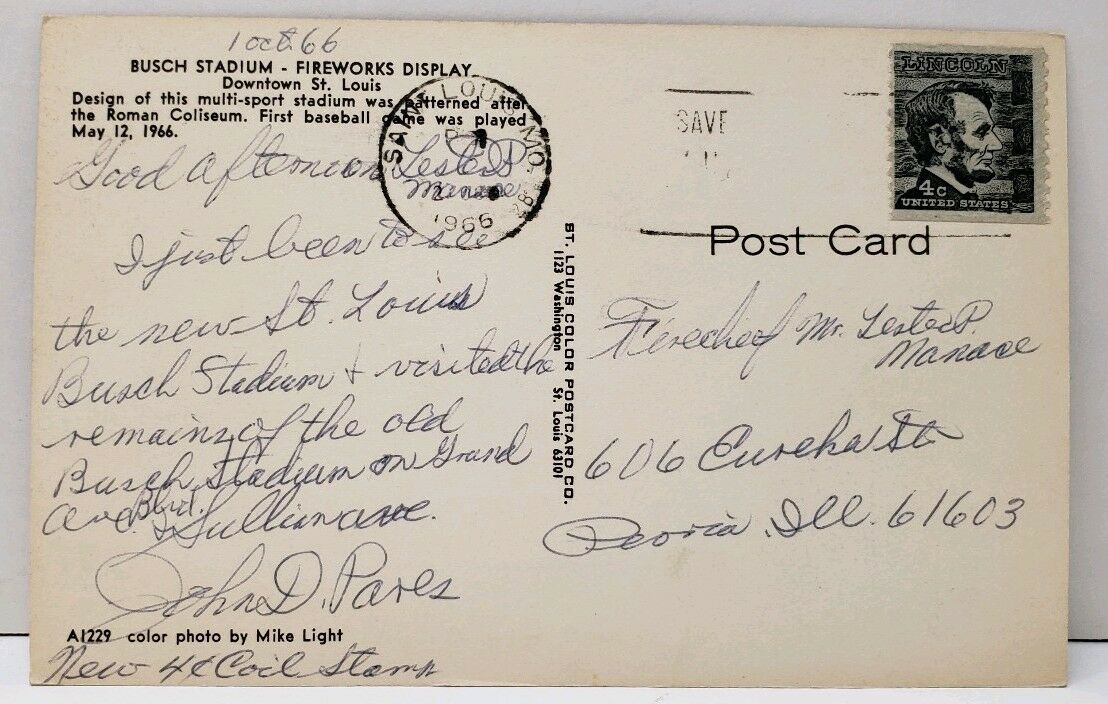 1 oct. 66
BUSCH STADIUM - FIREWORKS DISPLAY
Downtown St. Louis
Design of this multi-sport stadium was patterned after
the Roman Coliseum. First baseball game was played
May 12, 1966.
Good afternoon Lester P.
Manace
I just been to see
the new St. Louis
Busch Stadium & visited the
remains of the old
Busch Stadium on Grand
Blvd.
ave. & Sullivan ave.
John D. Pares
A1229 color photo by Mike Light
New 4¢ Coil Stamp
SAINT LOUIS MO.
1966
ST. LOUIS COLOR POSTCARD CO.
1123 Washington St. Louis 63101
SAVE
LINCOLN
4c
UNITED STATES
Post Card
Firechief Mr. Lester P.
Manace
606 Eureka St
Peoria, Ill. 61603